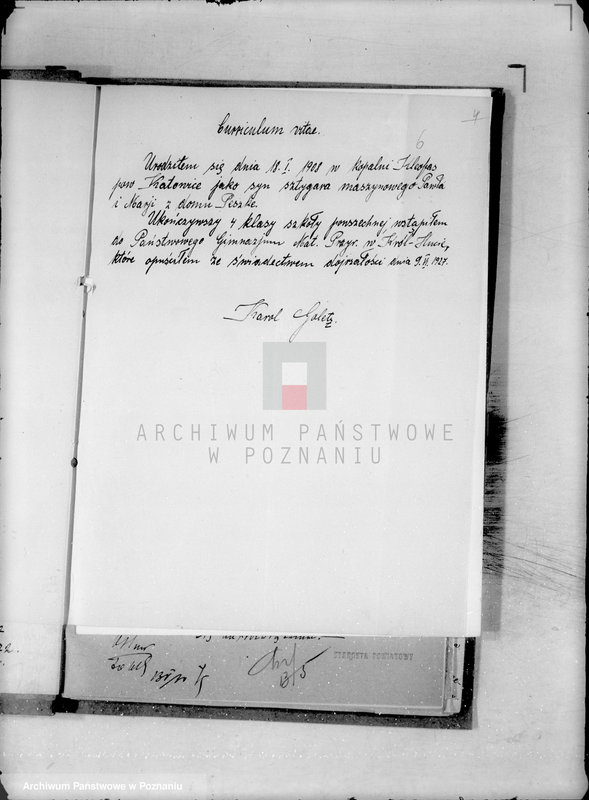 4
6
Curriculum vitae.
Urodziłem się dnia 18. I. 1908 w kopalni Kleofas
pow. Katowice jako syn sztygara maszynowego Pawła
i Marji z domu Peszke.
Ukończywszy 4 klasy szkoły powszechnej wstąpiłem
do Państwowego Gimnazjum Mat. Przyr. w Król-Hucie,
które opuściłem ze świadectwem dojrzałości dnia 9. VI. 1927.
Karol Goletz.
ARCHIWUM PAŃSTWOWE
W POZNANIU
STAROSTA POWIATOWY
Archiwum Państwowe w Poznaniu